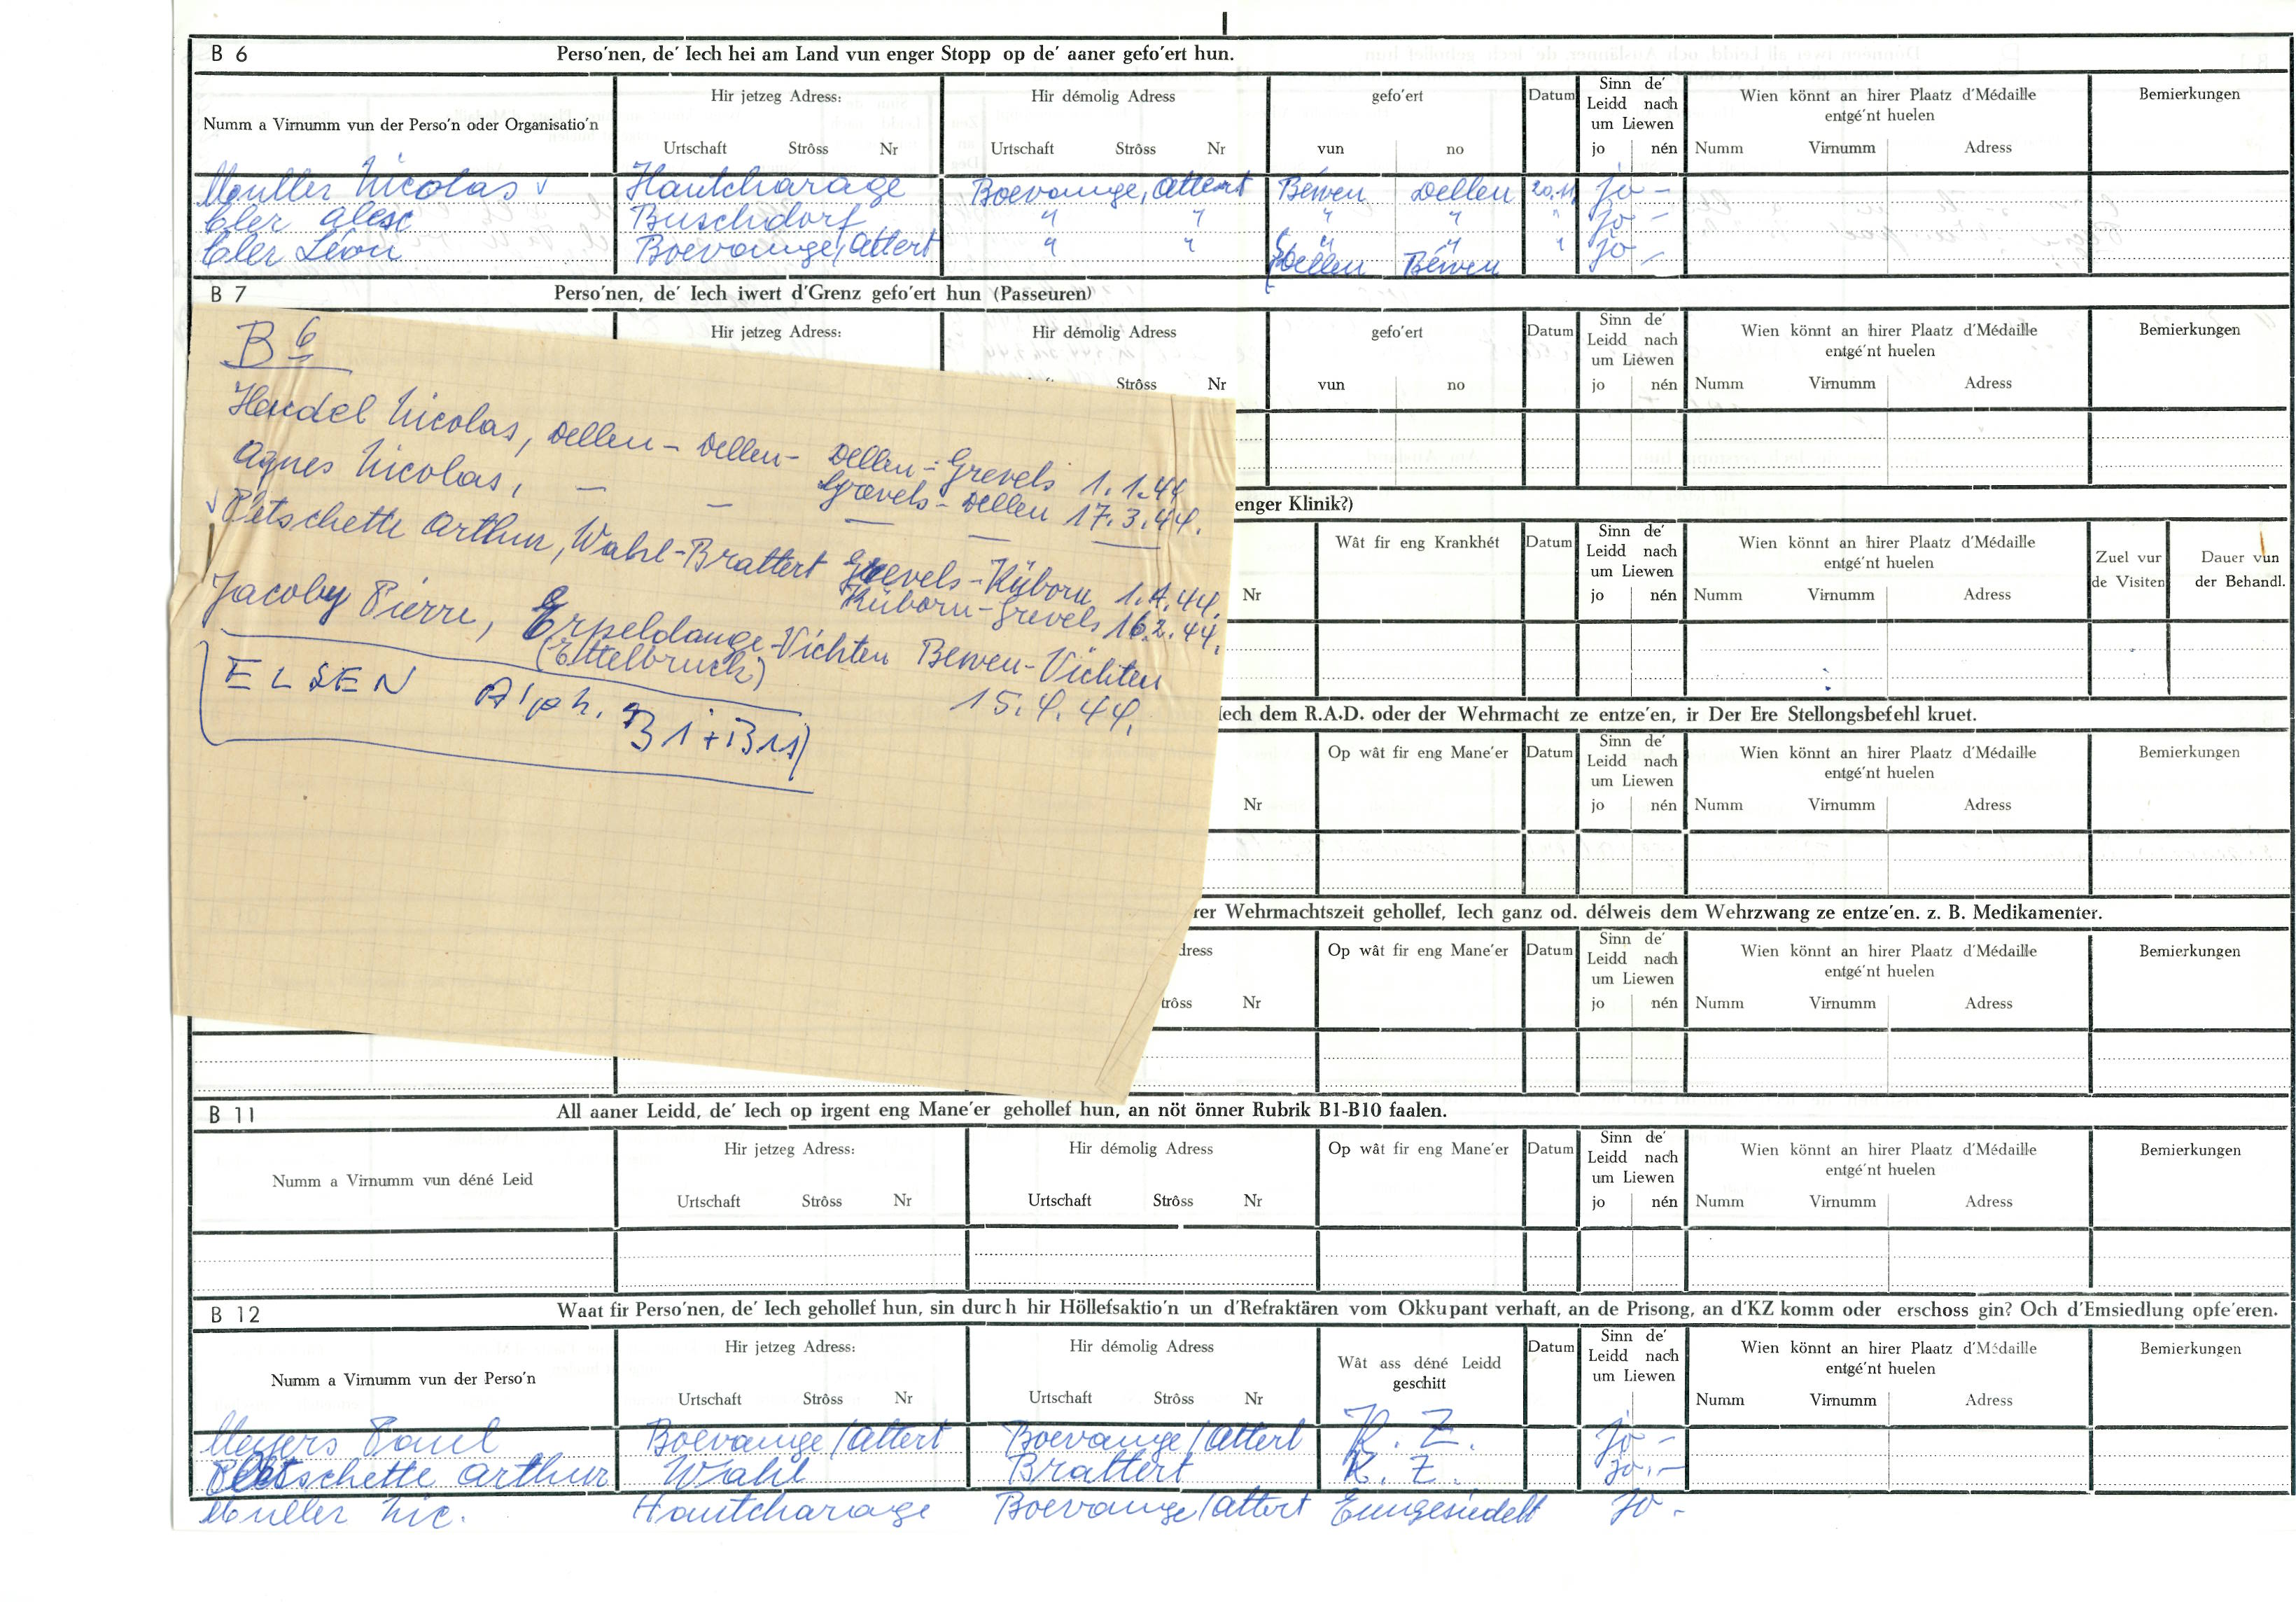 B 6 Perso'nen, de' Iech hei am Land vun enger Stopp op de' aaner gefo'ert hun.
Numm a Virnumm vun der Perso'n oder Organisatio'n
Hir jetzeg Adress:
Urtschaft Strôss Nr
Hir démolig Adress
Urtschaft Strôss Nr
gefo'ert
vun no
Datum
Sinn de'
Leidd nach
um Liewen
jo nén
Wien könnt an hirer Plaatz d'Médaille
entgé'nt huelen
Numm Virnumm Adress
Bemierkungen
Muller Nicolas Hautcharage Boevange, Attert Béwen Dellen 20.11. Jo -
Eler Alesc Buschdorf " " " " " Jo -
Eler Léon Boevange/Attert " " " " " Jo -
Dellen Béwen
B 7 Perso'nen, de' Iech iwert d'Grenz gefo'ert hun (Passeuren)
Hir jetzeg Adress:
Hir démolig Adress
Strôss Nr
gefo'ert
vun no
Datum
Sinn de'
Leidd nach
um Liewen
jo nén
Wien könnt an hirer Plaatz d'Médaille
entgé'nt huelen
Numm Virnumm Adress
Bemierkungen
B 6
Handel Nicolas, Dellen - Dellen - Dellen - Grevels 1.1.44
Agnes Nicolas, — — Grevels - Dellen 17.3.44.
Petschette Arthur, Wahl-Brattert Grevels-Küborn 1.1.44.
Küborn-Grevels 16.2.44.
Jacoby Pierre, Erpeldange-Vichten Bewen-Vichten
(Ettelbruck) 15.4.44.
ELSEN Alph. B1+B11
enger Klinik?)
Nr
Wât fir eng Krankhét
Datum
Sinn de'
Leidd nach
um Liewen
jo nén
Wien könnt an hirer Plaatz d'Médaille
entgé'nt huelen
Numm Virnumm Adress
Zuel vur
de Visiten
Dauer vun
der Behandl.
Iech dem R.A.D. oder der Wehrmacht ze entze'en, ir Der Ere Stellongsbefehl kruet.
Nr
Op wât fir eng Mane'er
Datum
Sinn de'
Leidd nach
um Liewen
jo nén
Wien könnt an hirer Plaatz d'Médaille
entgé'nt huelen
Numm Virnumm Adress
Bemierkungen
rer Wehrmachtszeit gehollef, Iech ganz od. délweis dem Wehrzwang ze entze'en. z. B. Medikamenter.
dress
trôss Nr
Op wât fir eng Mane'er
Datum
Sinn de'
Leidd nach
um Liewen
jo nén
Wien könnt an hirer Plaatz d'Médaille
entgé'nt huelen
Numm Virnumm Adress
Bemierkungen
B 11 All aaner Leidd, de' Iech op irgent eng Mane'er gehollef hun, an nöt önner Rubrik B1-B10 faalen.
Numm a Virnumm vun déné Leid
Hir jetzeg Adress:
Urtschaft Strôss Nr
Hir démolig Adress
Urtschaft Strôss Nr
Op wât fir eng Mane'er
Datum
Sinn de'
Leidd nach
um Liewen
jo nén
Wien könnt an hirer Plaatz d'Médaille
entgé'nt huelen
Numm Virnumm Adress
Bemierkungen
B 12 Waat fir Perso'nen, de' Iech gehollef hun, sin durch hir Höllefsaktio'n un d'Refraktären vom Okkupant verhaft, an de Prisong, an d'KZ komm oder erschoss gin? Och d'Emsiedlung opfe'eren.
Numm a Virnumm vun der Perso'n
Hir jetzeg Adress:
Urtschaft Strôss Nr
Hir démolig Adress
Urtschaft Strôss Nr
Wât ass déné Leidd
geschitt
Datum
Sinn de'
Leidd nach
um Liewen
jo nén
Wien könnt an hirer Plaatz d'Médaille
entgé'nt huelen
Numm Virnumm Adress
Bemierkungen
Meyers Paul Boevange/Attert Boevange/Attert K.Z. Jo -
Petschette Arthur Wahl Brattert K.Z. Jo.-
Muller Nic. Hautcharage Boevange/Attert Emgesiedelt Jo -